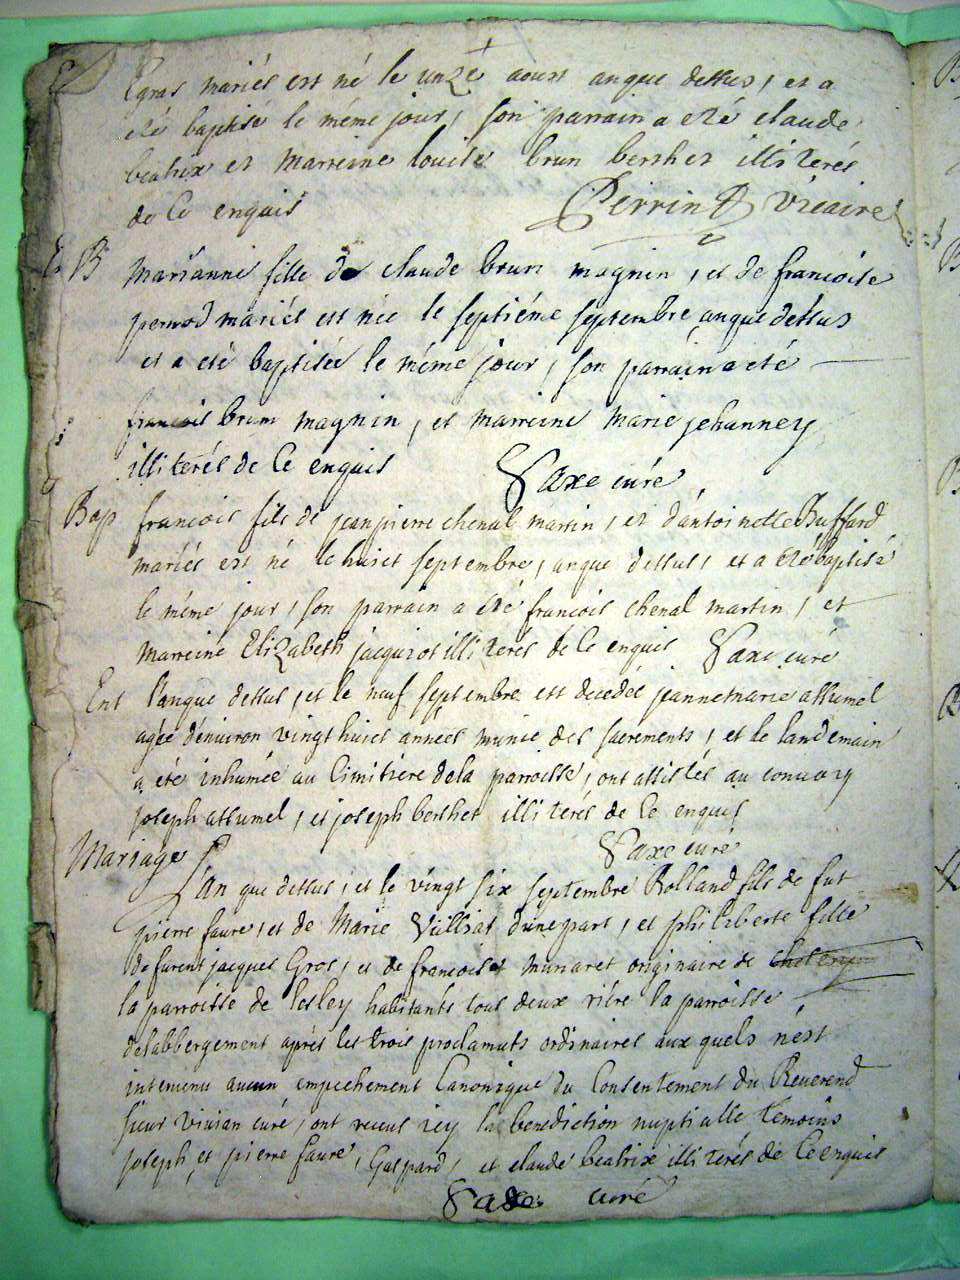 gras mariés est né le unze aoust anque dessus, et a
eté baptisé le méme jour, son parrain a eté claude
beatrix et marreine louise brun berthet illiterés
de ce enquis Perrin Vicaire
B marianne fille de claude brun magnin, et de francoise
perrod mariés est née le septiéme septembre anque dessus
et a eté baptisée le méme jour, son parrain a eté
francois brun magnin, et marreine marie jehanney
illiterés de ce enquis Saxe curé
Bap francois fils de jeanpierre chenal martin, et d'antoinette Buffard
mariés est né le huict septembre, anque dessus, et a eté baptisé
le méme jour, son parrain a eté francois chenal martin, et
marreine Elizabeth jacquiot illiterés de ce enquis Saxe curé
Ent l'anque dessus, et le neuf septembre est decedée jeannemarie assumel
agée d'environ vingt huict années munie des sacrements, et le landemain
a été inhumée au cimitière dela parroisse, ont assistés au convoy
joseph assumel, et joseph berthet illiterés de ce enquis
Saxe curé
Mariage L'an que dessus, et le vingt six septembre Rolland fils de fut
pierre faure, et de Marie Vulliat d'une part, et philiberte fille
de furent jacques Gros, et de francoise munaret originaire de
la parroisse de lesley habitants tous deux riére la parroisse
delabbergement aprés les trois proclamats ordinaires aux quels n'est
intervenu aucun empechement Canonique du Consentement du Reverend
sieur vivian curé, ont receus icy la benediction nuptialle temoins
joseph, et pierre faure, Gaspard, et claude beatrix illiterés de ce enquis
Saxe curé